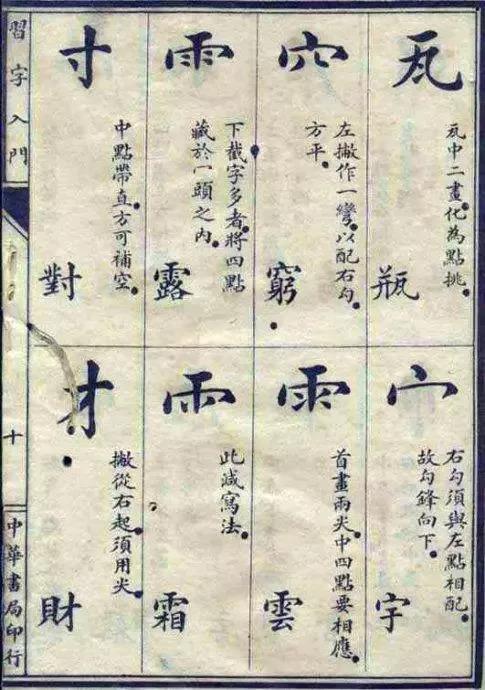 瓦
瓦中二畫。化為點挑。
瓶
穴
左撇作一彎。以配右勾
方平。
窮
雨
下截字多者。將四點
藏於一頭之內。
露
寸
中點帶直。方可補空。
對
宀
右勾須與左點相配。
故勾鋒向下。
字
雨
首畫兩尖。中四點要相應。
雲
雨
此減寫法。
霜
才
撇從右起。須用尖。
財
習字入門
十
中華書局印行